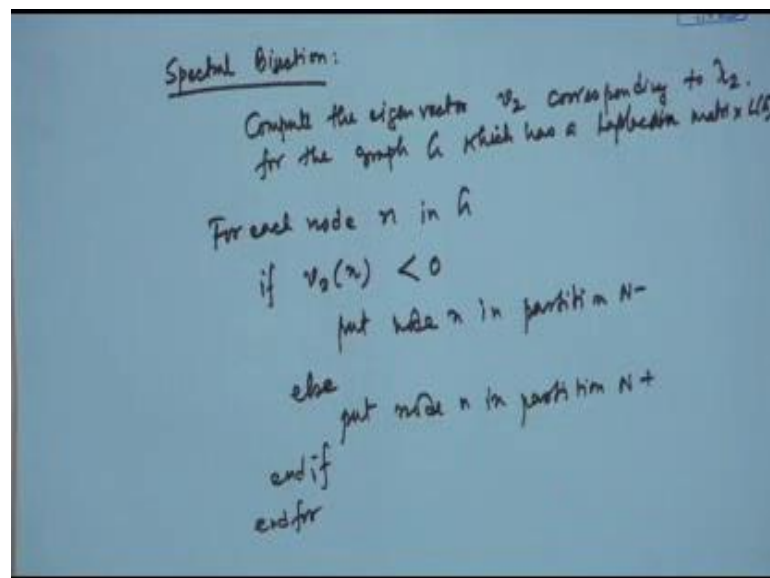 Spectral Bisection:
Compute the eigen vector v₂ corresponding to λ₂.
for the graph G which has a Laplacian matrix L(G
For each node n in G
if v₂(n) < 0
put node n in partition N-
else
put node n in partition N+
endif
endfor